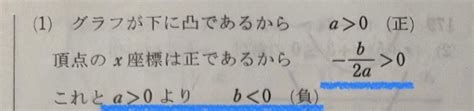 (1) グラフが下に凸であるから a>0 (正)
頂点の x 座標は正であるから -b/2a>0
これと a>0 より b<0 (負)